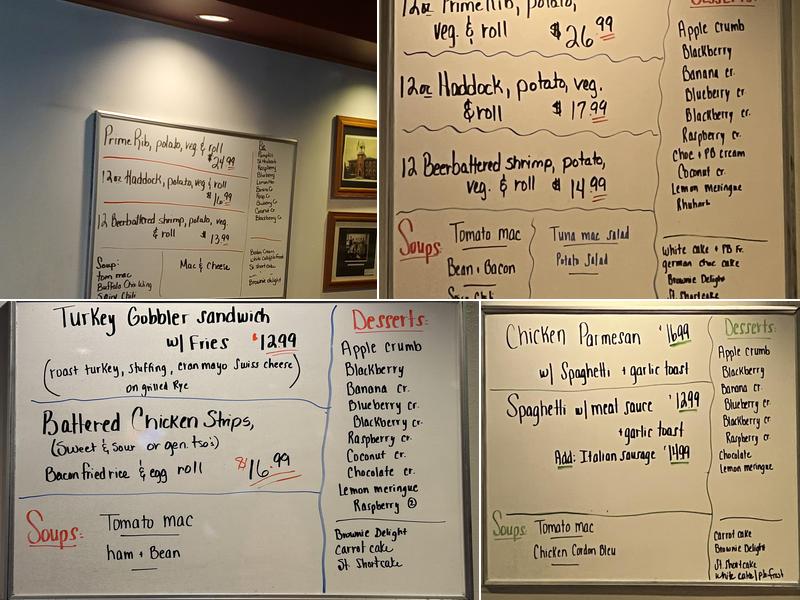 Prime Rib, potato, veg & roll
$24.99
12oz Haddock, potato, veg & roll
$16.99
12 Beerbattered shrimp, potato, veg
& roll $13.99
Soup:
tom mac
Buffalo Chix Wing
Spicy Chili
Mac & Cheese
Pumpkin
Raspberry
Blueberry
Coconut Cr
Blackberry Cr
Boston Cream
St. Shortcake
Brownie delight
12oz Prime Rib, potato,
veg. & roll $26.99
12oz Haddock, potato, veg.
& roll $17.99
12 Beerbattered shrimp, potato,
veg. & roll $14.99
Soups:
Tomato mac
Bean + Bacon
Tuna mac salad
Potato Salad
Desserts:
Apple crumb
Blackberry
Banana cr.
Blueberry cr.
Blackberry cr.
Raspberry cr.
Choc + PB cream
Coconut cr.
Lemon meringue
Rhubarb
White cake + PB Fr.
german choc cake
Brownie Delight
St. Shortcake
Turkey Gobbler sandwich
w/ Fries $12.99
(roast turkey, stuffing, cran mayo Swiss cheese)
on grilled Rye
Battered Chicken Strips,
(Sweet & Sour or gen. tso's)
Bacon fried rice & egg roll $16.99
Soups:
Tomato mac
ham + Bean
Desserts:
Apple crumb
Blackberry
Banana cr.
Blueberry cr.
Blackberry cr.
Raspberry cr.
Coconut cr.
Chocolate cr.
Lemon meringue
Raspberry ②
Brownie Delight
Carrot cake
St. Shortcake
Chicken Parmesan $16.99
w/ Spaghetti + garlic toast
Spaghetti w/ meat sauce $12.99
+garlic toast
Add: Italian sausage $14.99
Soups:
Tomato mac
Chicken Cordon Bleu
Desserts:
Apple crumb
Blackberry
Banana cr.
Blueberry cr.
Blackberry cr.
Raspberry cr.
Chocolate
Lemon meringue
Carrot cake
Brownie Delight
St. Shortcake
White cake/pb frost